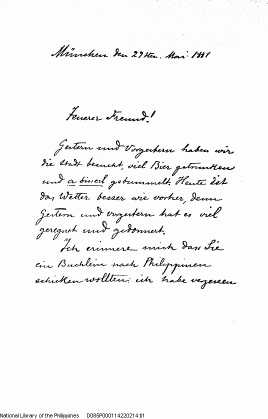 München den 29ten. Mai 1887
Teuerer Freund!
Gestern und Vorgestern haben wir
die Stadt besucht, viel Bier getrunken
und a bisserl gebummelt. Heute ist
das Wetter besser wie vorher, denn
Gestern und vorgestern hat es viel
geregnet und gedonnert.
Ich erinnere mich dass Sie
ein Buchlein nach Philippinen
schicken wollten; ich habe vergessen
National Library of the Philippines